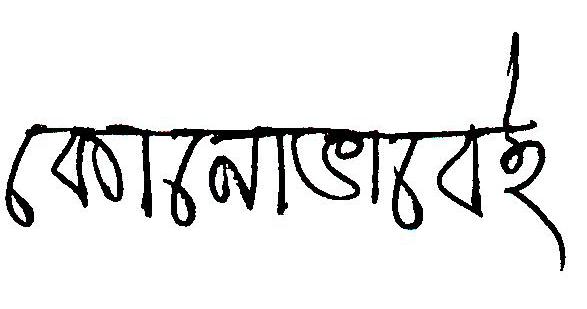 কোনোভাবেই